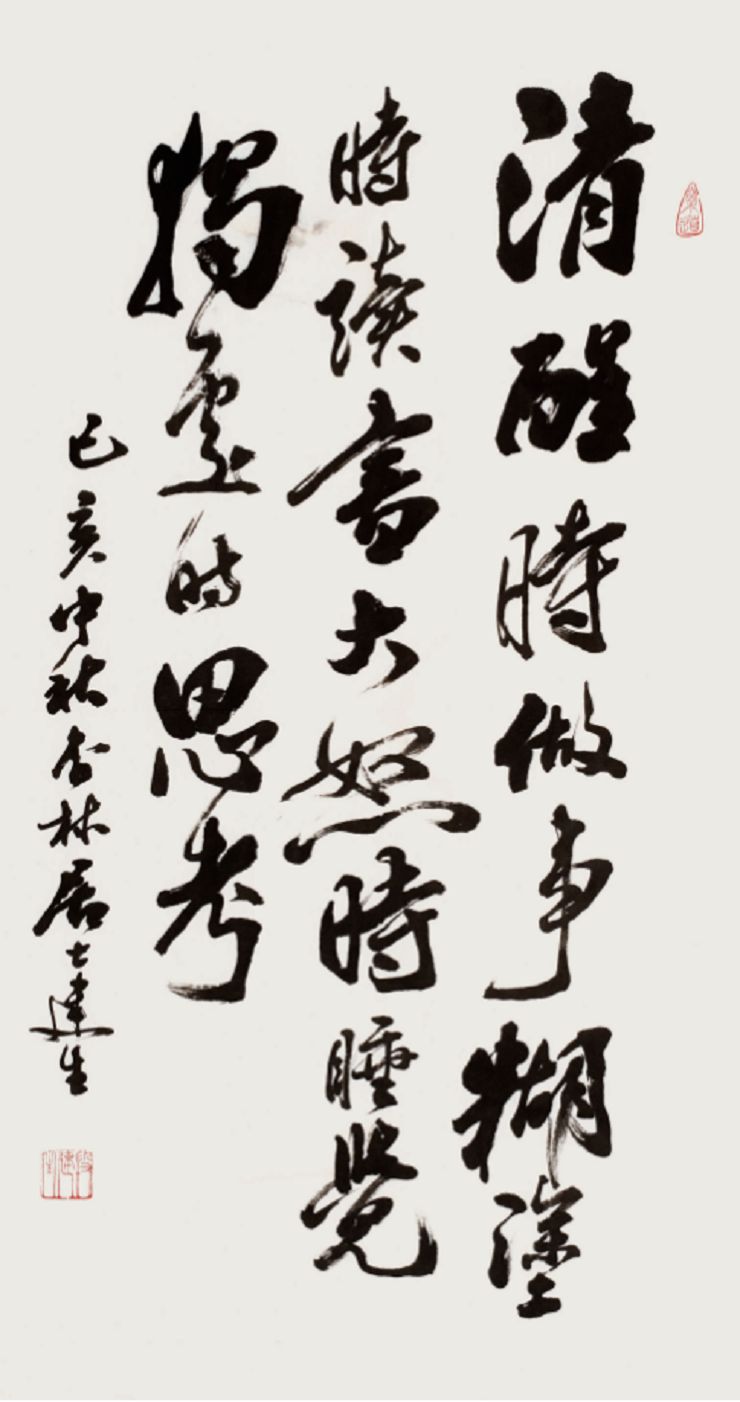 清醒時做事糊塗
時讀書大怒時睡覺
獨處时思考
己亥中秋杏林居士建生